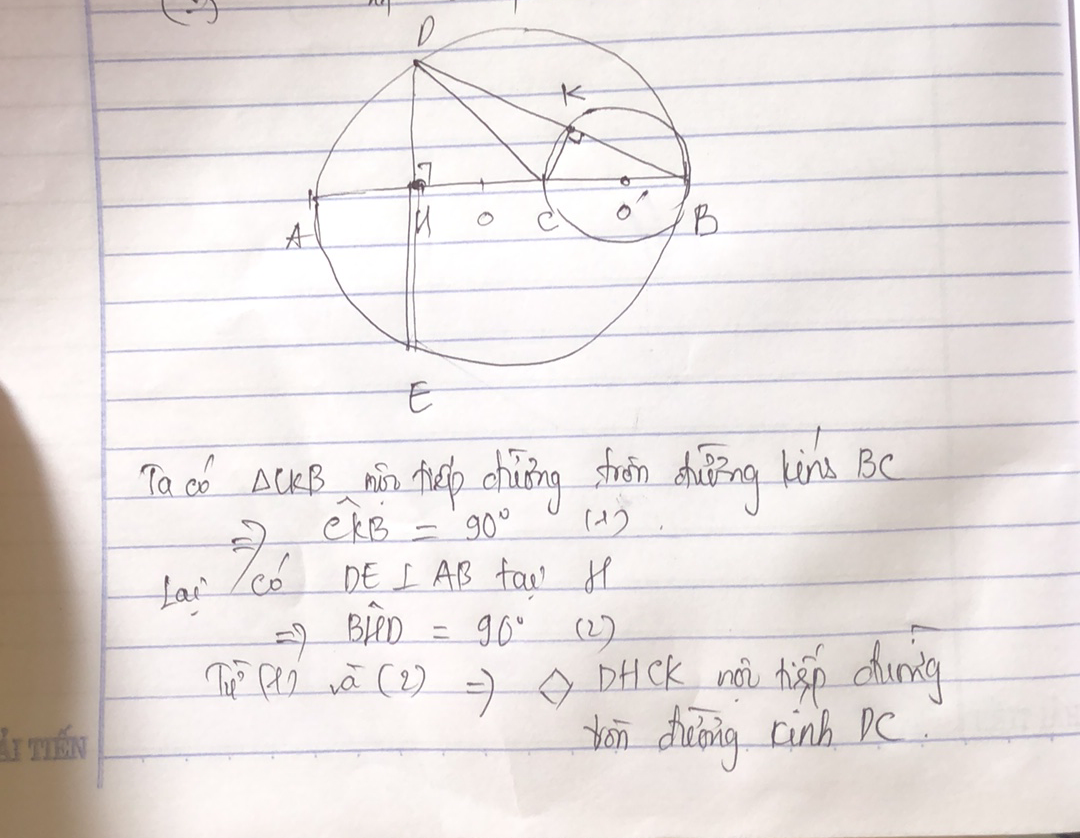 D
K
A
H
O
C
O'
B
E
Ta có ΔCKB nội tiếp đường tròn đường kính BC
=> ĈKB = 90° (1).
Lại có DE ⊥ AB tại H
=> BĤD = 90° (2)
Từ (1) và (2) => ◇ DHCK nội tiếp đường
tròn đường kính DC.
ẢI TIẾN